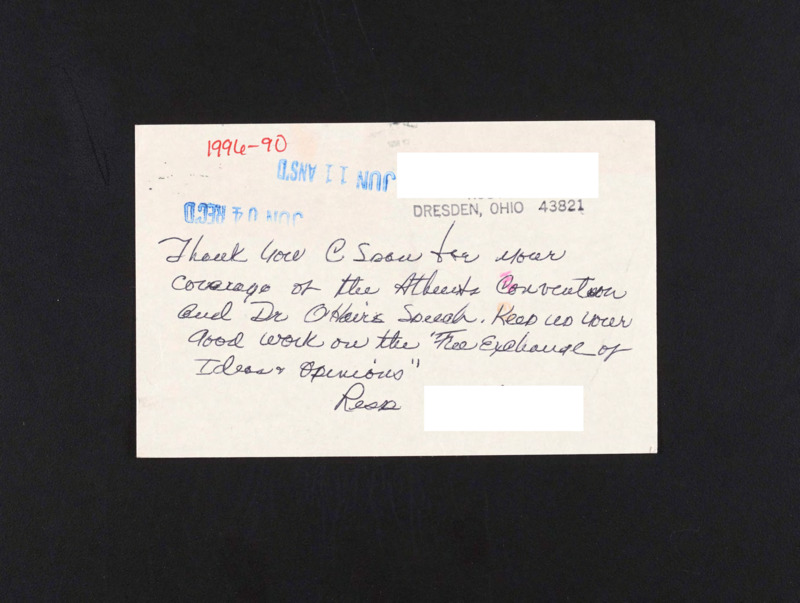 1996-90
JUN 11 ANS'D
DRESDEN, OHIO 43821
JUN 04 REC'D
Thank You C Span for your
coverage of the Atheists Convention
and Dr O'Hair's Speech. Keep up your
good work on the "Free Exchange of
Ideas & Opinions"
Resp